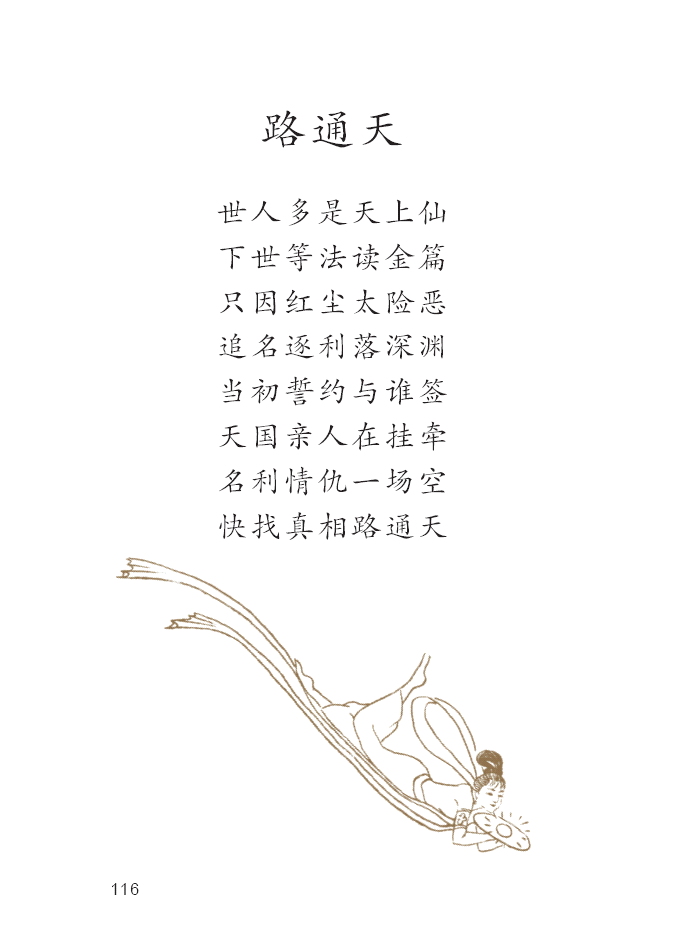 路通天
世人多是天上仙
下世等法读金篇
只因红尘太险恶
追名逐利落深渊
当初誓约与谁签
天国亲人在挂牵
名利情仇一场空
快找真相路通天
116